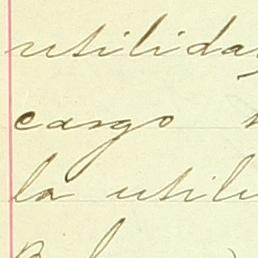 utilida
cargo
la utili